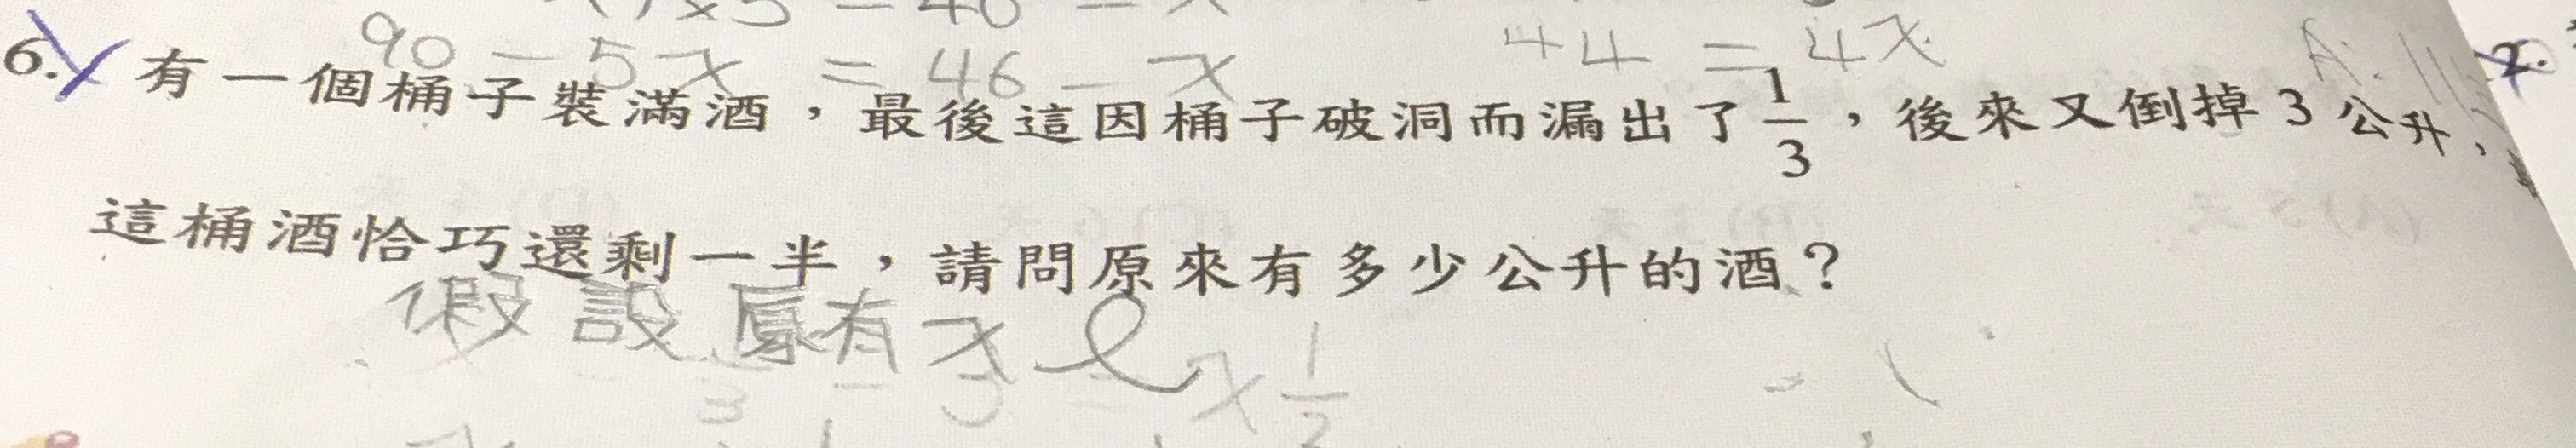 90 - 5x = 46 - x
44 = 4x
6. 有一個桶子裝滿酒，最後這因桶子破洞而漏出了 1/3 ，後來又倒掉 3 公升，
2.
這桶酒恰巧還剩一半，請問原來有多少公升的酒？
假設原有 x ℓ
3 - 3 = x 1/2